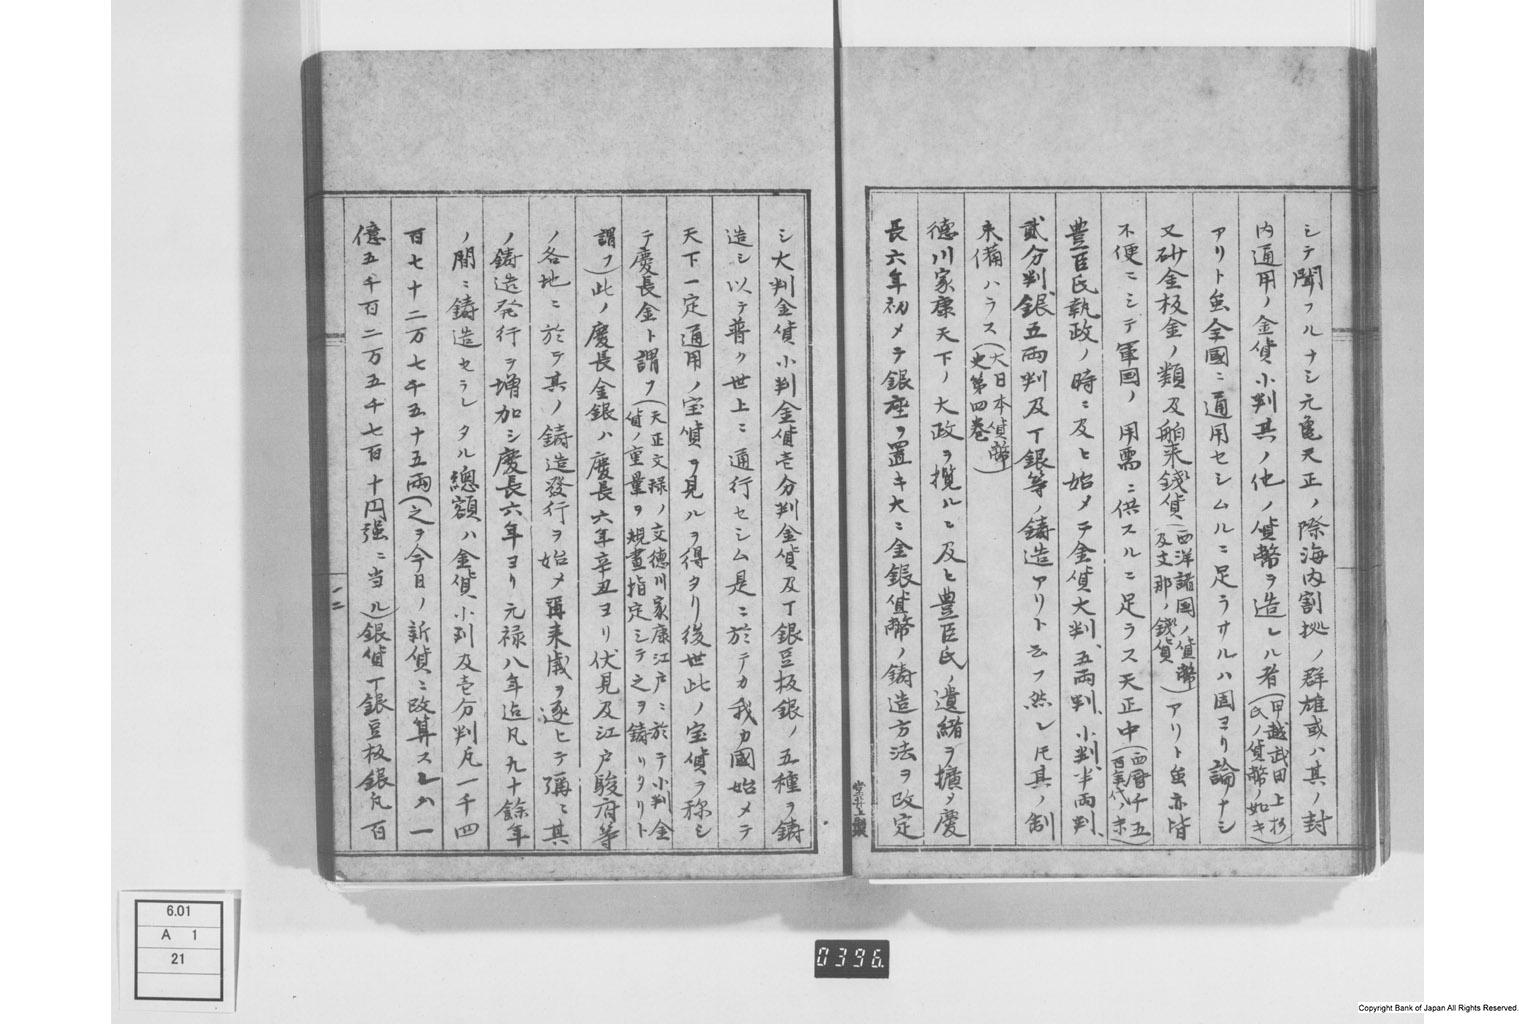 シテ聞フルナシ元亀天正ノ際海内割拠ノ群雄或ハ其ノ封
内通用ノ金貨小判其ノ他ノ貨幣ヲ造レル者(甲越武田上杉氏ノ貨幣ノ如キ)
アリト雖全國ニ通用セシムルニ足ラサルハ固ヨリ論ナシ
又砂金板金ノ類及舶来銭貨(西洋諸国ノ貨幣及支那ノ銭貨)アリト雖亦皆
不便ニシテ軍国ノ用需ニ供スルニ足ラス天正中(西暦千五百年代ノ末)
豊臣氏執政ノ時ニ及ヒ始メテ金貨大判、五両判、小判、半両判、
貳分判銀五両判及丁銀等ノ鋳造アリト云フ然レ𪜈其ノ制
未備ハラス(大日本貨幣史第四巻)
徳川家康天下ノ大政ヲ攬ルニ及ヒ豊臣氏ノ遺緒ヲ擴メ慶
長六年初メテ銀座ヲ置キ大ニ金銀貨幣ノ鋳造方法ヲ改定
シ大判金貨小判金貨壱分判金貨及丁銀豆板銀ノ五種ヲ鋳
造シ以テ普ク世上ニ通行セシム是ニ於テカ我カ國始メテ
天下一定通用ノ宝貨ヲ見ルヲ得タリ後世此ノ宝貨ヲ称シ
テ慶長金ト謂フ(天正文禄ノ交徳川家康江戸ニ於テ小判金貨ノ重量ヲ規畫指定シテ之ヲ鋳リタリト
謂フ)此ノ慶長金銀ハ慶長六年辛丑ヨリ伏見及江戸駿府等
ノ各地ニ於テ其ノ鋳造發行ヲ始メ爾来歳ヲ逐ヒテ彌ニ其
ノ鋳造発行ヲ増加シ慶長六年ヨリ元禄八年迄凡九十餘年
ノ間ニ鋳造セラレタル總額ハ金貨小判及壱分判凡一千四
百七十二万七千五十五両(之ヲ今日ノ新貨ニ改算スレハ一
億五千百二万五千七百十円強ニ当ル)銀貨丁銀豆板銀凡百
一二
6.01
A 1
21
0396
Copyright Bank of Japan All Rights Reserved.